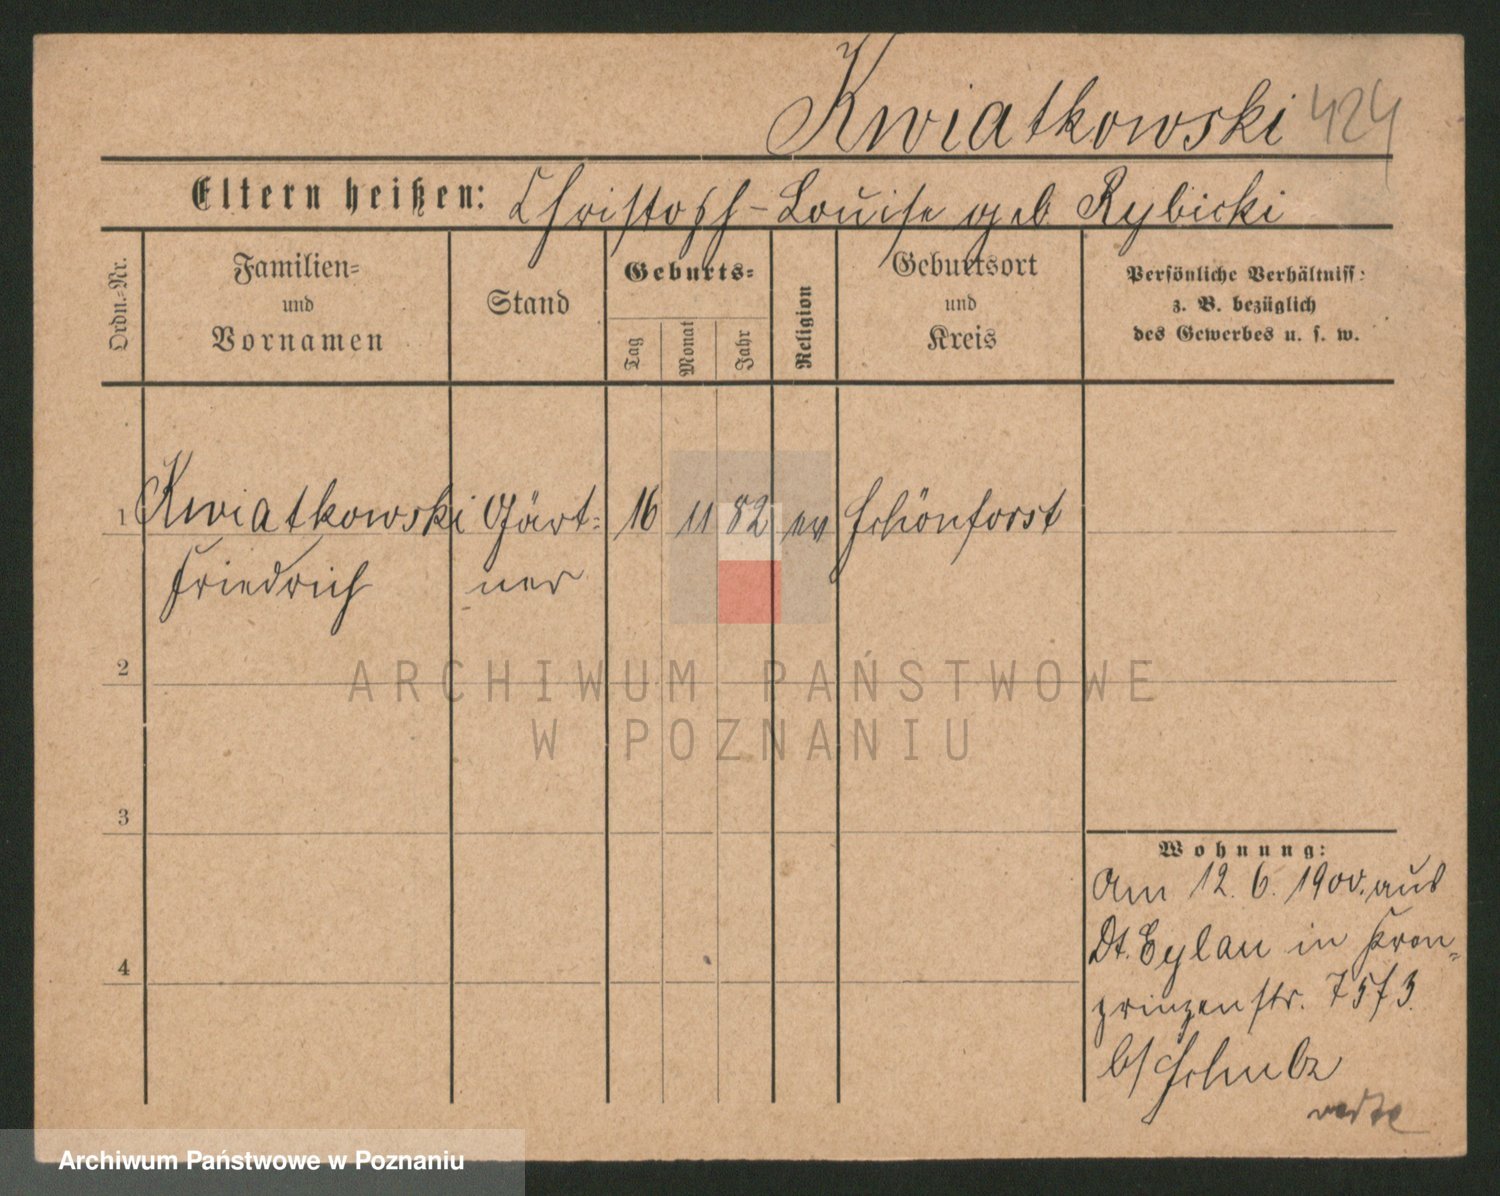 Kwiatkowski 424
Eltern heißen: Christoph - Louise geb Rybicki
Ordn.-Nr.
Familien-
und
Vornamen
Stand
Geburts-
Tag
Monat
Jahr
Religion
Geburtsort
und
Kreis
Persönliche Verhältniss:
z. B. bezüglich
des Gewerbes u. s. w.
1 Kwiatkowski Gärt- 16 11 82 ev Schönforst
Friedrich ner
2
3
4
Wohnung:
Am 12. 6. 1900. aus
Dt. Eylau in Kron-
prinzenstr.
b/ Schulz
verte
ARCHIWUM PAŃSTWOWE
W POZNANIU
Archiwum Państwowe w Poznaniu